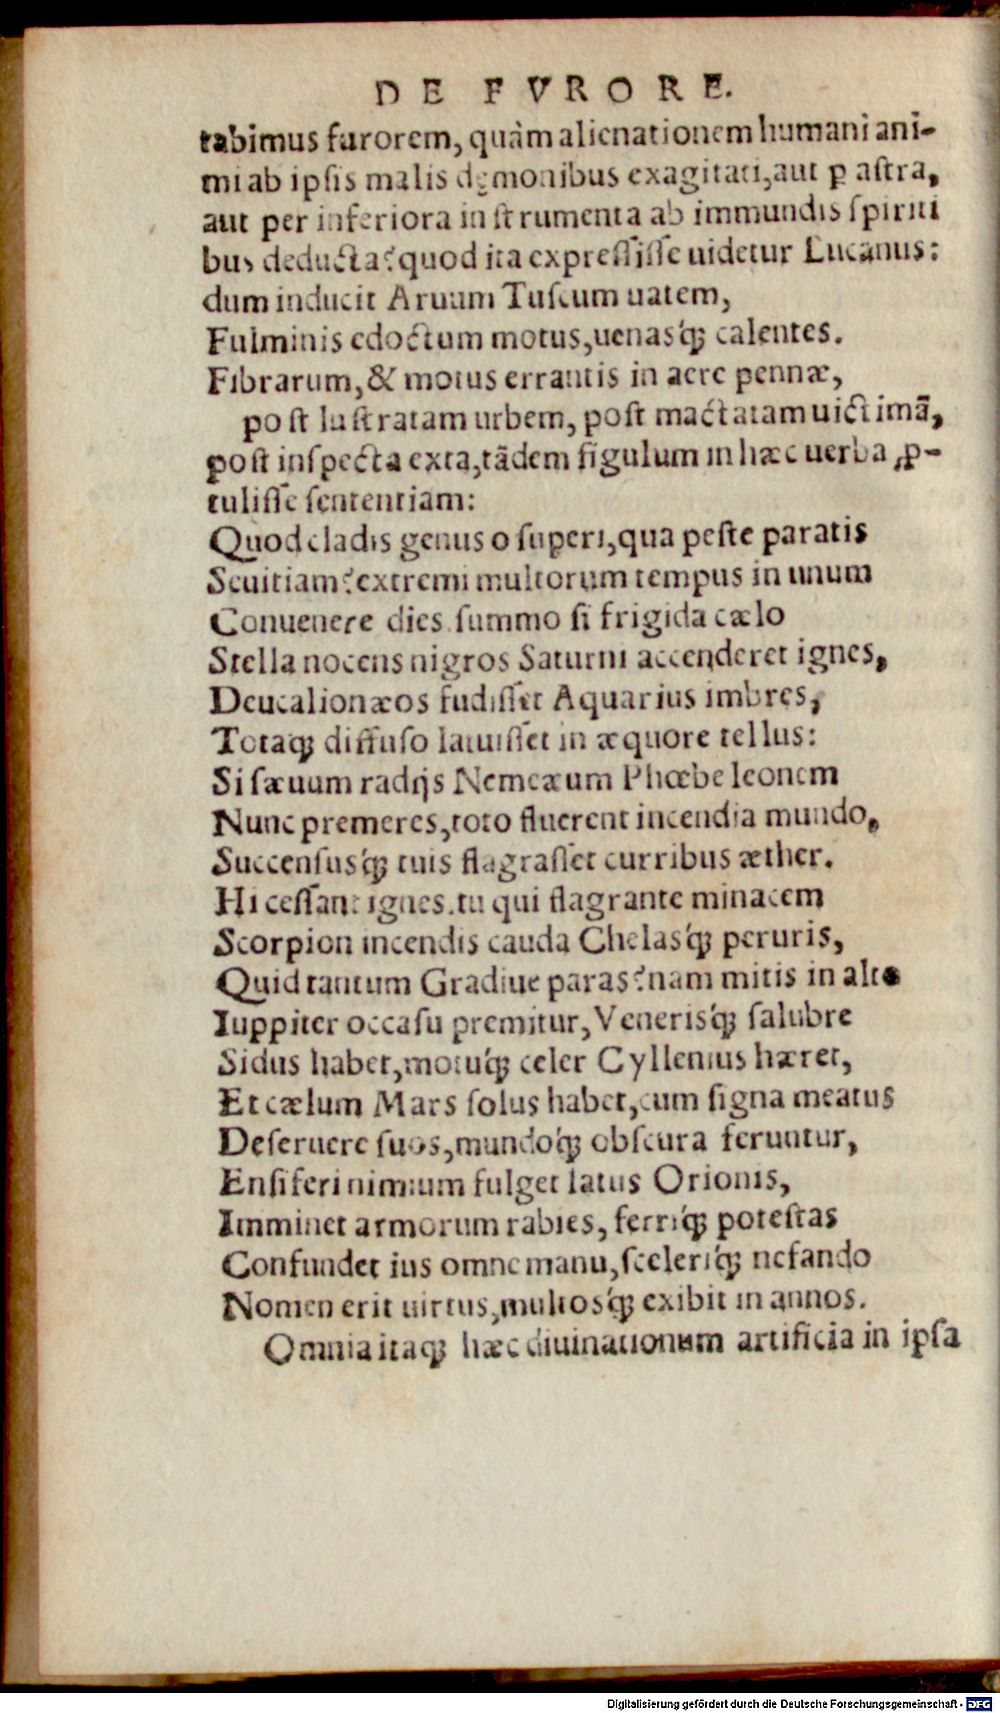 DE FVRORE.
tabimus furorem, quàm alienationem humani ani-
mi ab ipsis malis dęmonibus exagitati, aut ꝑ astra,
aut per inferiora instrumenta ab immundis spiriti
bus deducta? quod ita expressisse uidetur Lucanus:
dum inducit Aruum Tuscum uatem,
Fulminis edoctum motus, uenasq́; calentes.
Fibrarum, & motus errantis in aere pennæ,
post lustratam urbem, post mactatam uictimā,
post inspecta exta, tādem figulum in hæc uerba ꝓ-
tulisse sententiam:
Quod cladis genus o superi, qua peste paratis
Seuitiam? extremi multorum tempus in unum
Conuenere dies. summo si frigida cælo
Stella nocens nigros Saturni accenderet ignes,
Deucalionæos fudisset Aquarius imbres,
Totaq; diffuso latuisset in æquore tellus:
Si sæuum radijs Nemeæum Phœbe leonem
Nunc premeres, toto fluerent incendia mundo,
Succensusq́; tuis flagrasset curribus æther.
Hi cessant ignes. tu qui flagrante minacem
Scorpion incendis cauda Chelasq́; peruris,
Quid tantum Gradiue paras? nam mitis in alto
Iuppiter occasu premitur, Venerisq́; salubre
Sidus habet, motuq́; celer Cyllenius hæret,
Et cælum Mars solus habet, cum signa meatus
Deseruere suos, mundoq́; obscura feruntur,
Ensiferi nimium fulget latus Orionis,
Imminet armorum rabies, ferriq́; potestas
Confundet ius omne manu, sceleriq́; nefando
Nomen erit uirtus, multosq́; exibit in annos.
Omnia itaq; hæc diuinationum artificia in ipsa
Digitalisierung gefördert durch die Deutsche Forschungsgemeinschaft - DFG